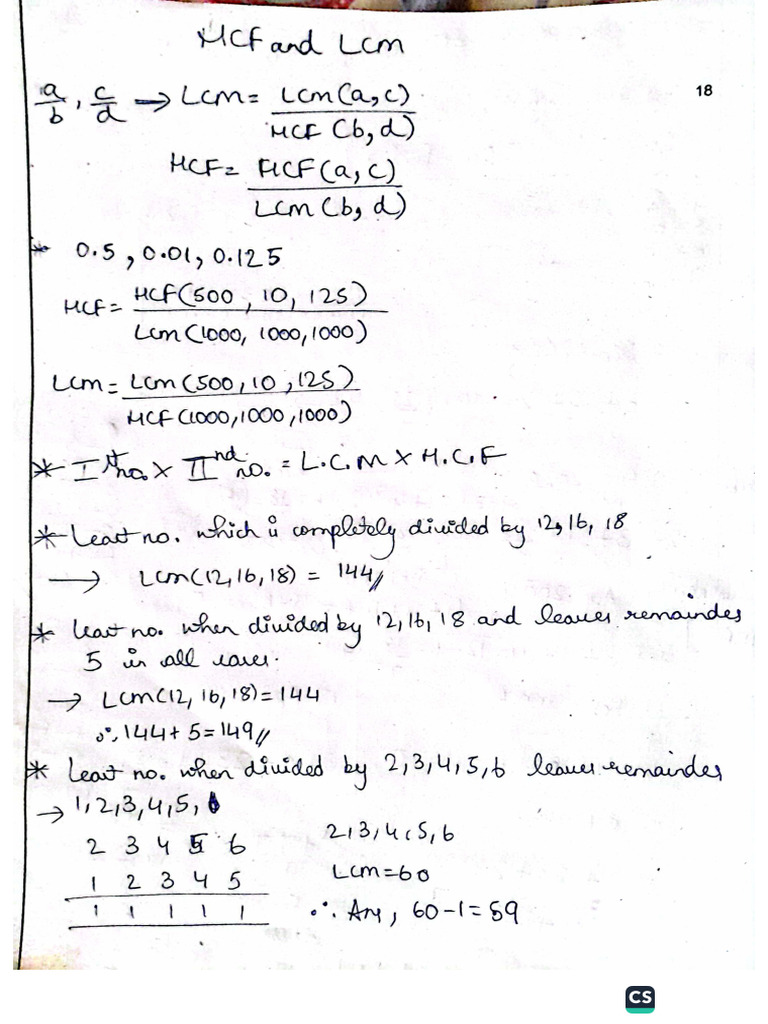 HCF and Lcm
18
a/b , c/d → Lcm = Lcm(a,c) / HCF (b,d)
HCF = HCF(a,c) / Lcm(b,d)
* 0.5, 0.01, 0.125
HCF = HCF(500, 10, 125) / Lcm(1000, 1000, 1000)
Lcm = Lcm(500, 10, 125) / HCF(1000, 1000, 1000)
* Ist no. x IInd no. = L.C.M x H.C.F
* Least no. which is completely divided by 12, 16, 18
→ Lcm(12,16,18) = 144//
* least no. when divided by 12, 16, 18 and leaves remainder
5 in all cases.
→ Lcm(12, 16, 18) = 144
∴ 144 + 5 = 149//
* Least no. when divided by 2,3,4,5,6 leaves remainder
→ 1,2,3,4,5,
2 3 4 5 6
2,3,4,5,6
1 2 3 4 5
Lcm=60
1 1 1 1 1
∴ Ans, 60-1=59
CS